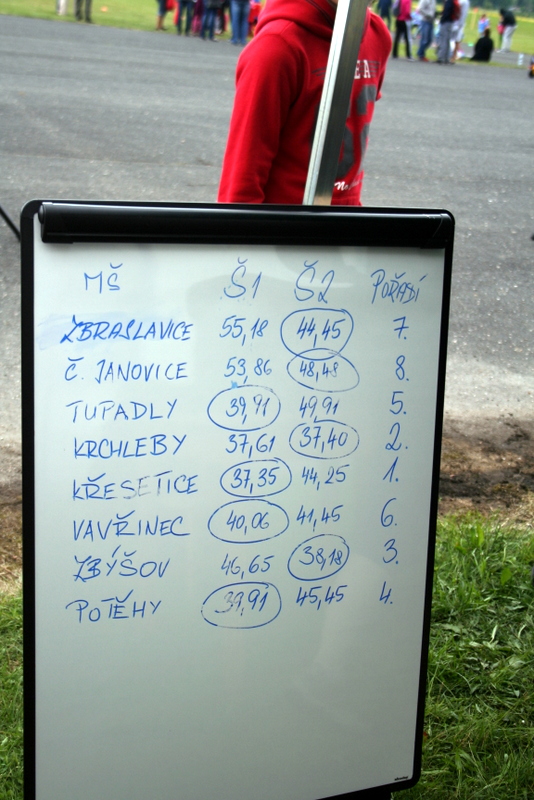 MŠ Š1 Š2 POŘADÍ
ZBRASLAVICE 55,18 44,45 7.
Č. JANOVICE 53,86 48,48 8.
TUPADLY 39,91 49,91 5.
KRCHLEBY 37,61 37,40 2.
KŘESETICE 37,35 44,25 1.
VAVŘINEC 40,06 41,45 6.
ZBÝŠOV 46,65 38,18 3.
POTĚHY 39,91 45,45 4.